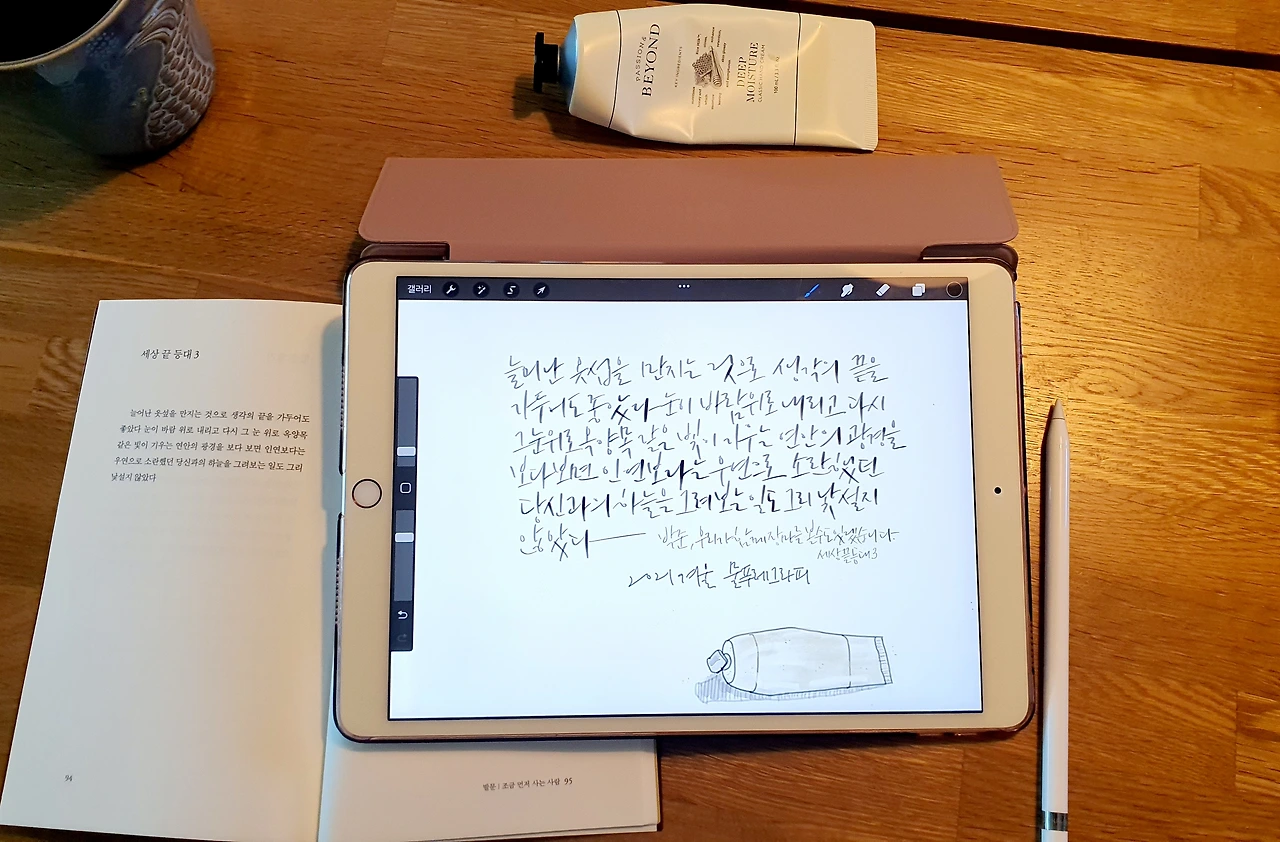 PASSIONS
BEYOND
KEY INGREDIENTS
DEEP
MOISTURE
CLASSIC HAND CREAM
세상 끝 등대 3
늘어난 옷섶을 만지는 것으로 생각의 끝을 가두어도
좋았다 눈이 바람 위로 내리고 다시 그 눈 위로 옥양목
같은 빛이 기우는 연안의 광경을 보다 보면 인연보다는
우연으로 소란했던 당신과의 하늘을 그려보는 일도 그리
낯설지 않았다
94
발문 | 조금 먼저 사는 사람 95
갤러리
늘어난 옷섶을 만지는 것으로 생각의 끝을
가두어도 좋았다 눈이 바람위로 내리고 다시
그 눈위로 옥양목 같은 빛이 기우는 연안의 광경을
보다보면 인연보다는 우연으로 소란했던
당신과의 하늘을 그려보는 일도 그리 낯설지
않았다 박준, 우리가 함께 장마를 볼 수도 있겠습니다
세상끝등대3
2021 겨울 물푸레그라피